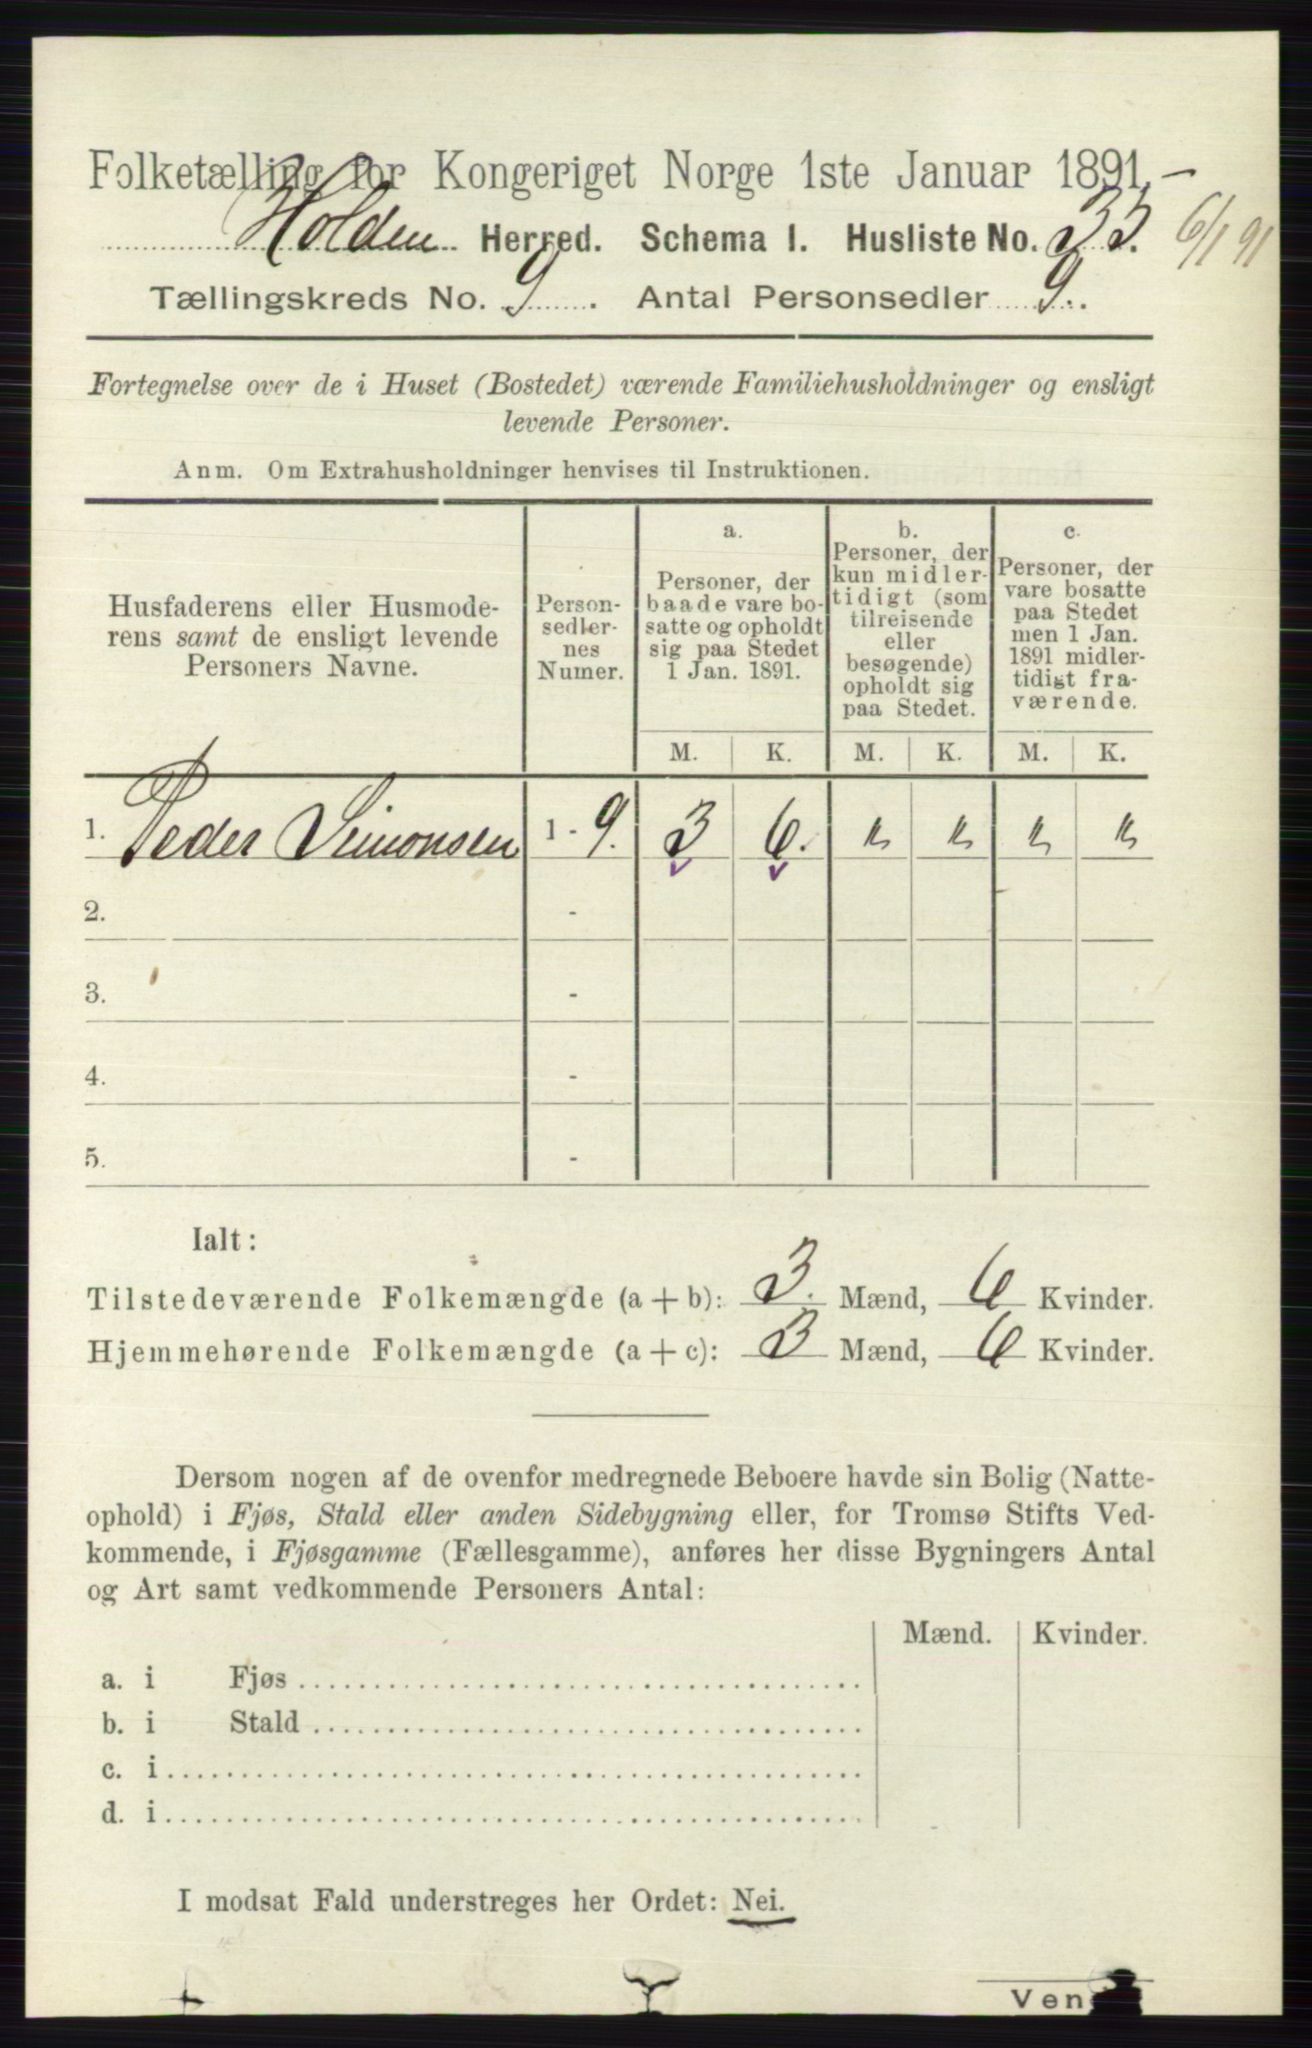 Folketælling for Kongeriget Norge 1ste Januar 1891.
Holden Herred. Schema 1. Husliste No. 33. 6/1 91
Tællingskreds No. 9. Antal Personsedler 9.
Fortegnelse over de i Huset (Bostedet) værende Familiehusholdninger og ensligt
levende Personer.
Anm. Om Extrahusholdninger henvises til Instruktionen.
Husfaderens eller Husmode-
rens samt de ensligt levende
Personers Navne.
Person-
sedler-
nes
Numer.
a.
Personer, der
baade vare bo-
satte og opholdt
sig paa Stedet
1 Jan. 1891.
b.
Personer, der
kun midler-
tidigt (som
tilreisende
eller
besøgende)
opholdt sig
paa Stedet.
c.
Personer, der
vare bosatte
paa Stedet
men 1 Jan.
1891 midler-
tidigt fra-
værende.
M. K. M. K. M. K.
1. Peder Simonsen 1 - 9. 3 6. " " " "
2. -
3. -
4. -
5. -
Ialt:
Tilstedeværende Folkemængde (a + b): 3. Mænd, 6 Kvinder.
Hjemmehørende Folkemængde (a + c): 3 Mænd, 6 Kvinder.
Dersom nogen af de ovenfor medregnede Beboere havde sin Bolig (Natte-
ophold) i Fjøs, Stald eller anden Sidebygning eller, for Tromsø Stifts Ved-
kommende, i Fjøsgamme (Fællesgamme), anføres her disse Bygningers Antal
og Art samt vedkommende Personers Antal:
Mænd. Kvinder.
a. i Fjøs
b. i Stald
c. i
d. i
I modsat Fald understreges her Ordet: Nei.
Ven